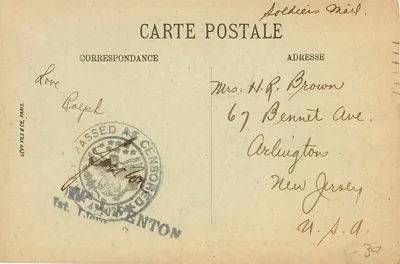 Soldiers Mail.
CARTE POSTALE
CORRESPONDANCE
ADRESSE
Love
Ralph
LÉVY FILS & CIE, PARIS.
PASSED AS CENSORED
ENTON
1st. Lieu
Mrs. H. R. Brown
67 Bennet Ave.
Arlington
New Jersey
U. S. A